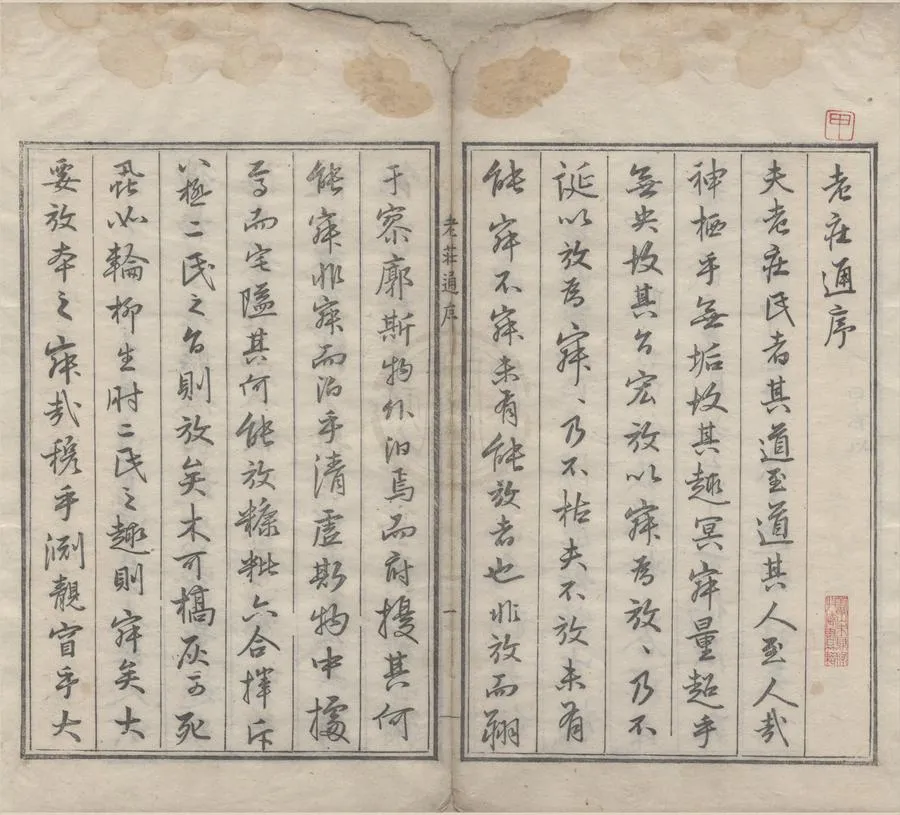 老庄通序
夫老庄氏者其道至道其人至人哉
神栖乎無垢故其趣冥寂量超乎
無央故其言宏放以寂為放、乃不
誕以放為寂、乃不枯夫不放未有
能寂不寂未有能放者也非放而翱
老莊通序
一
于寥廓斯物外汩焉而府擾其何
能寂非寂而泊乎清虛斯物中據
焉而宅隘其何能放糠粃六合揮斥
八極二氏之言則放矣木可槁灰可死
輪柳生肘二氏之趣則寂矣大
要放本之寂哉穆乎淵靚窅乎大
甲